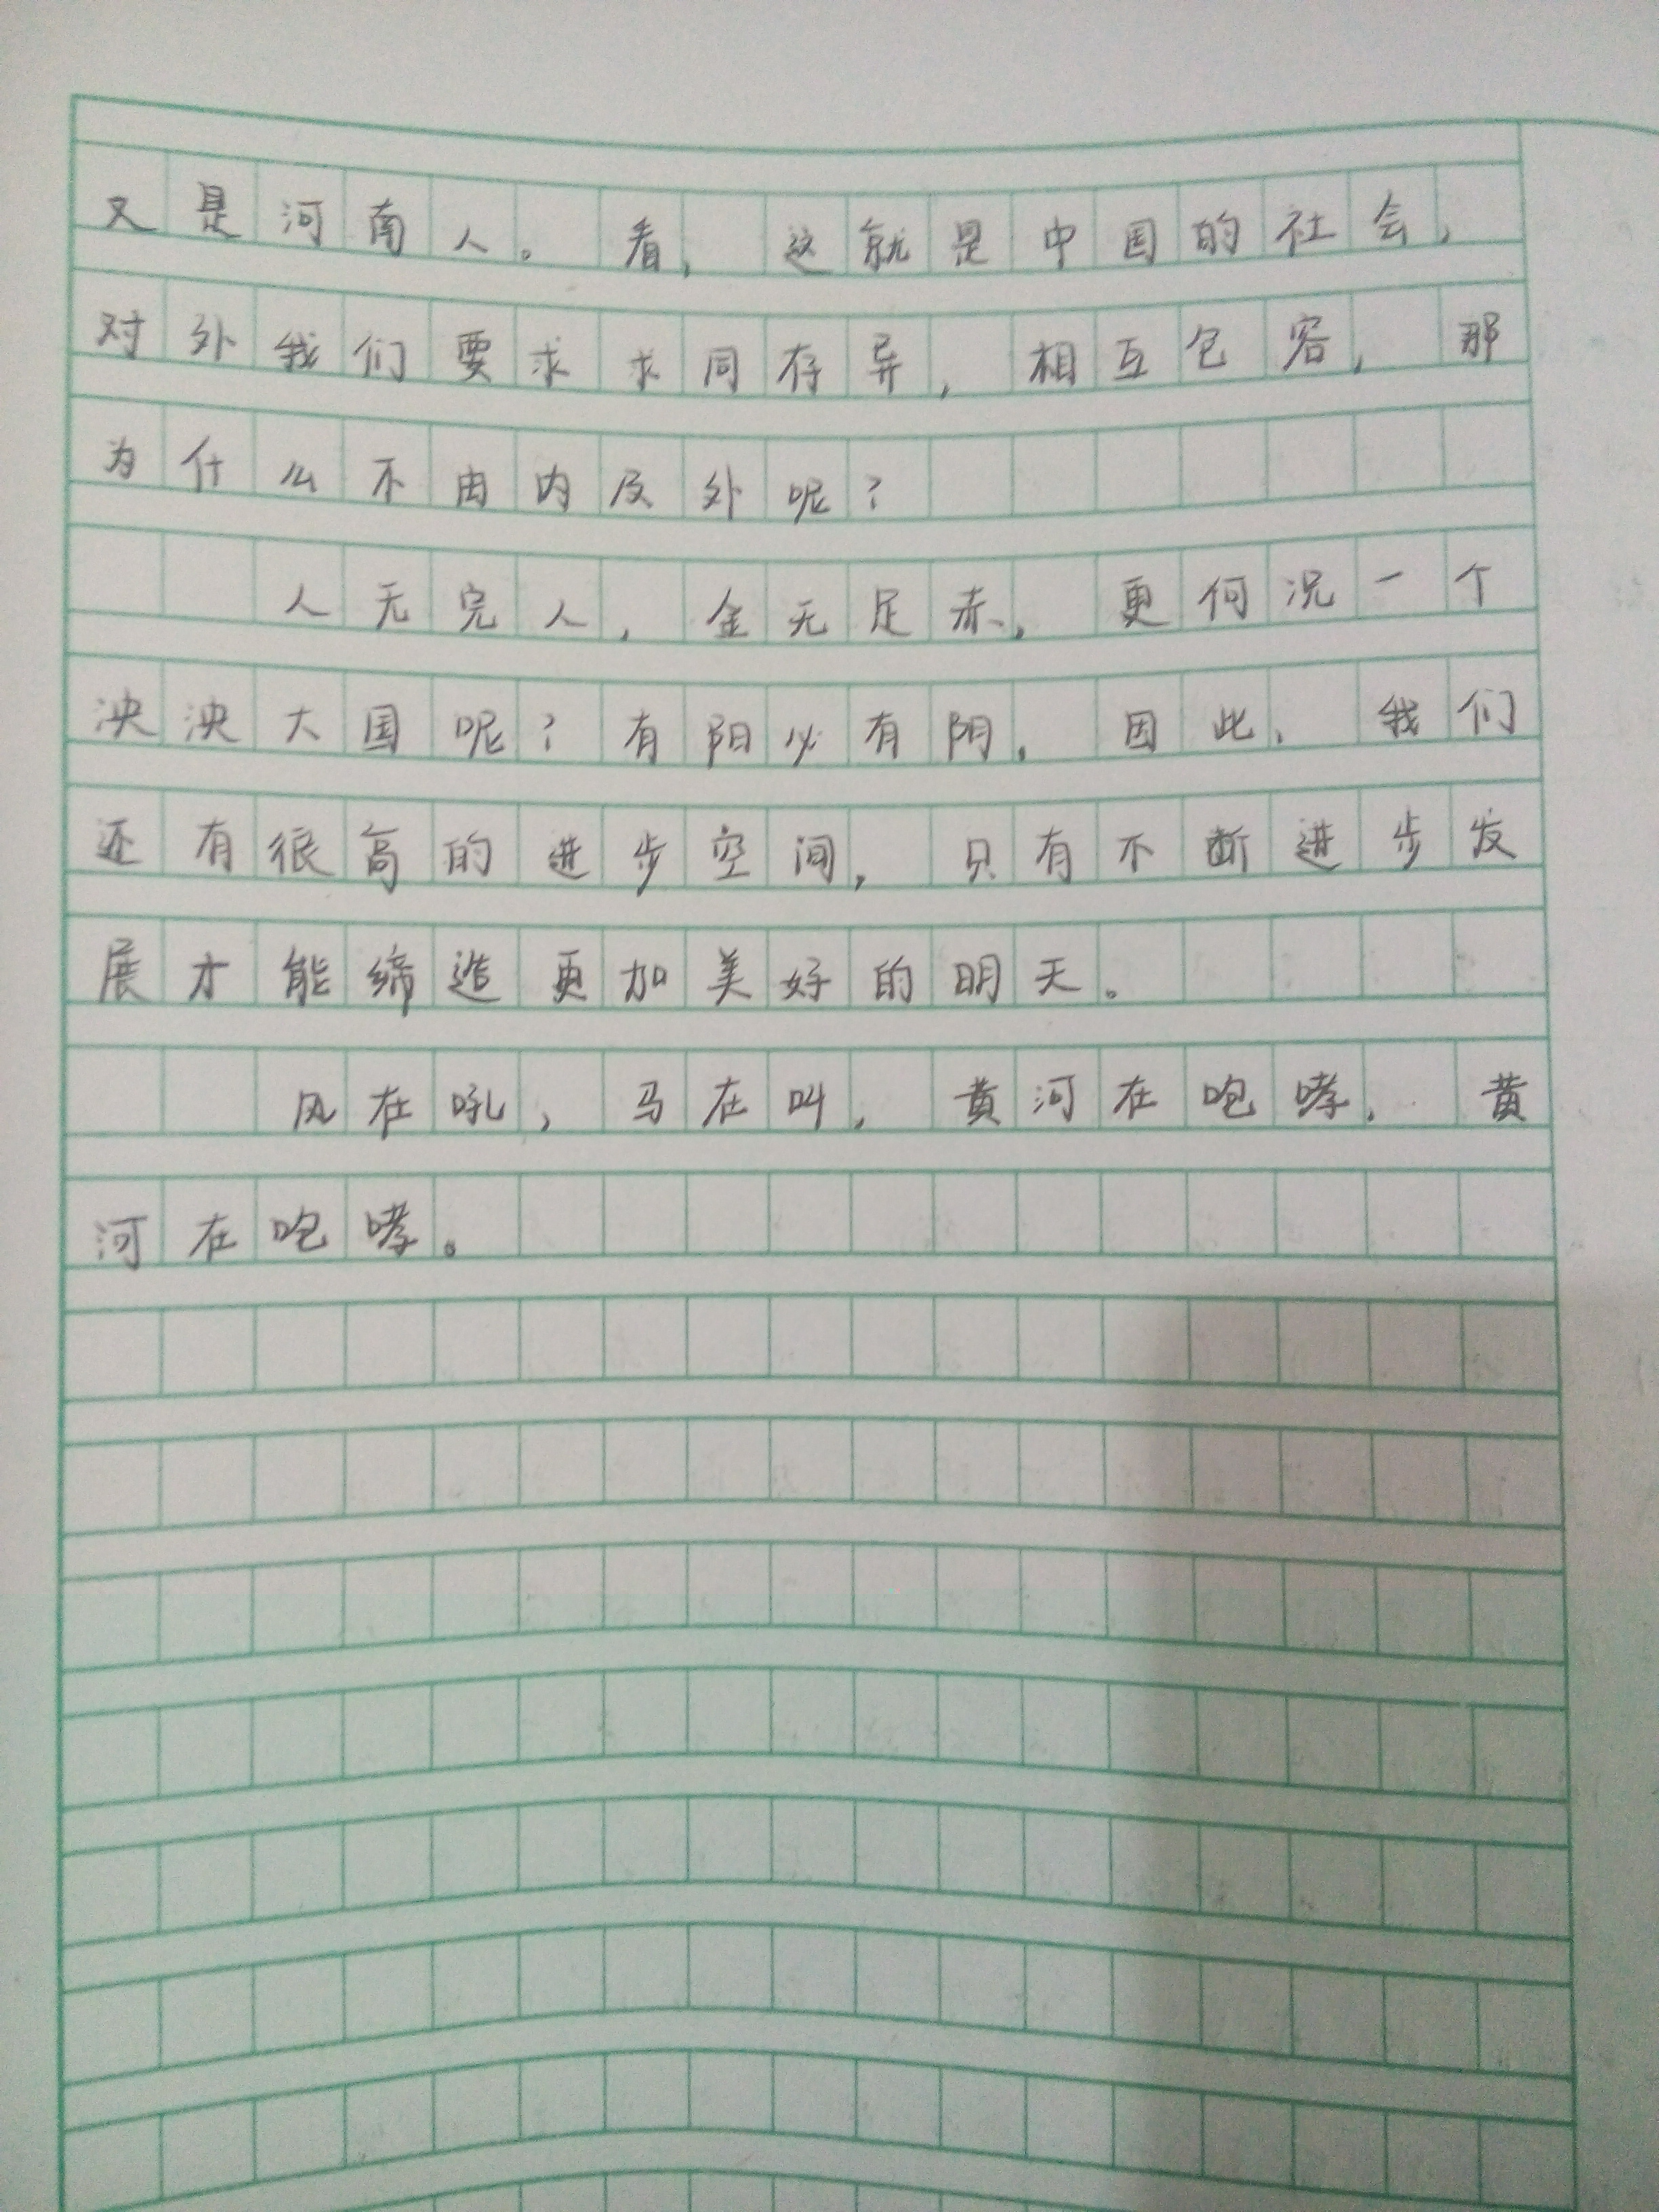 又是河南人。看，这就是中国的社会，
对外我们要求求同存异，相互包容，那
为什么不由内及外呢？
人无完人，金无足赤，更何况一个
泱泱大国呢？有阳必有阴，因此，我们
还有很高的进步空间，只有不断进步发
展才能缔造更加美好的明天。
风在吼，马在叫，黄河在咆哮，黄
河在咆哮。